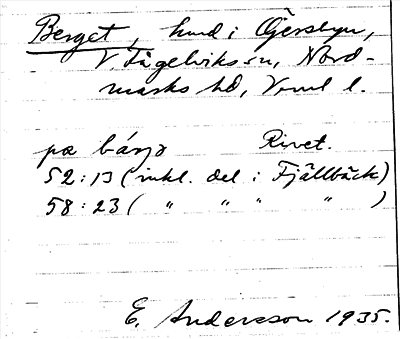 Berget, hmd i Ögersbyn,
V. Fågelviks sn, Nord-
marks hd, Vrml l.
pæ bárjə Rivet.
52:13 (inkl. del i Fjällbäck)
58:23 ( " " " " )
E. Andersson 1935.